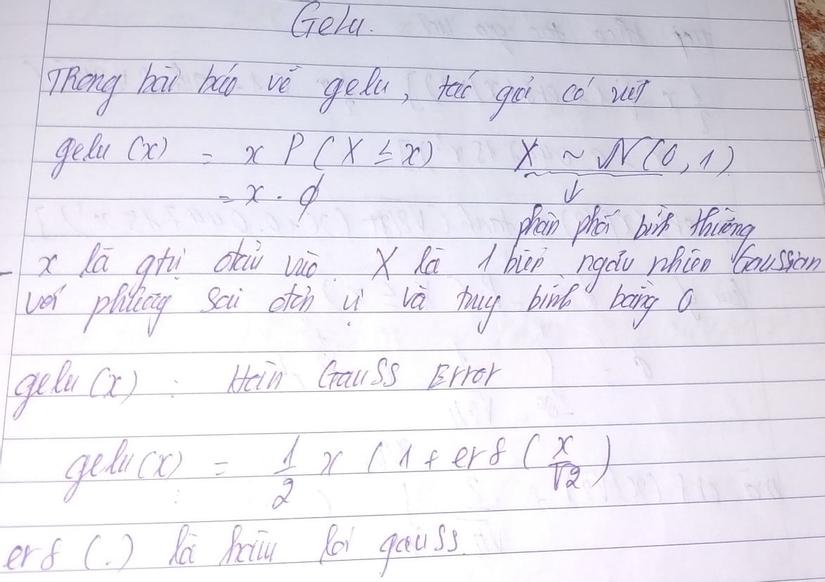 Gelu.
Trong bài báo về gelu, tác giả có viết
gelu (x) = x P ( X ≤ x) X ~ N(0, 1)
= x . ϕ
phân phối bình thường
- x là gtrị đầu vào. X là 1 biến ngẫu nhiên Gaussian
với phương sai đơn vị và trung bình bằng 0
gelu (x) : Hàm Gauss Error
gelu(x) = 1/2 x ( 1 + erf ( x/√2 )
erf (.) là hàm lỗi gauss.